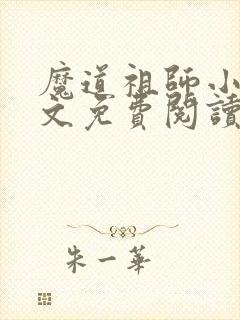 魔道祖師小
文免費閱讀
朱一華